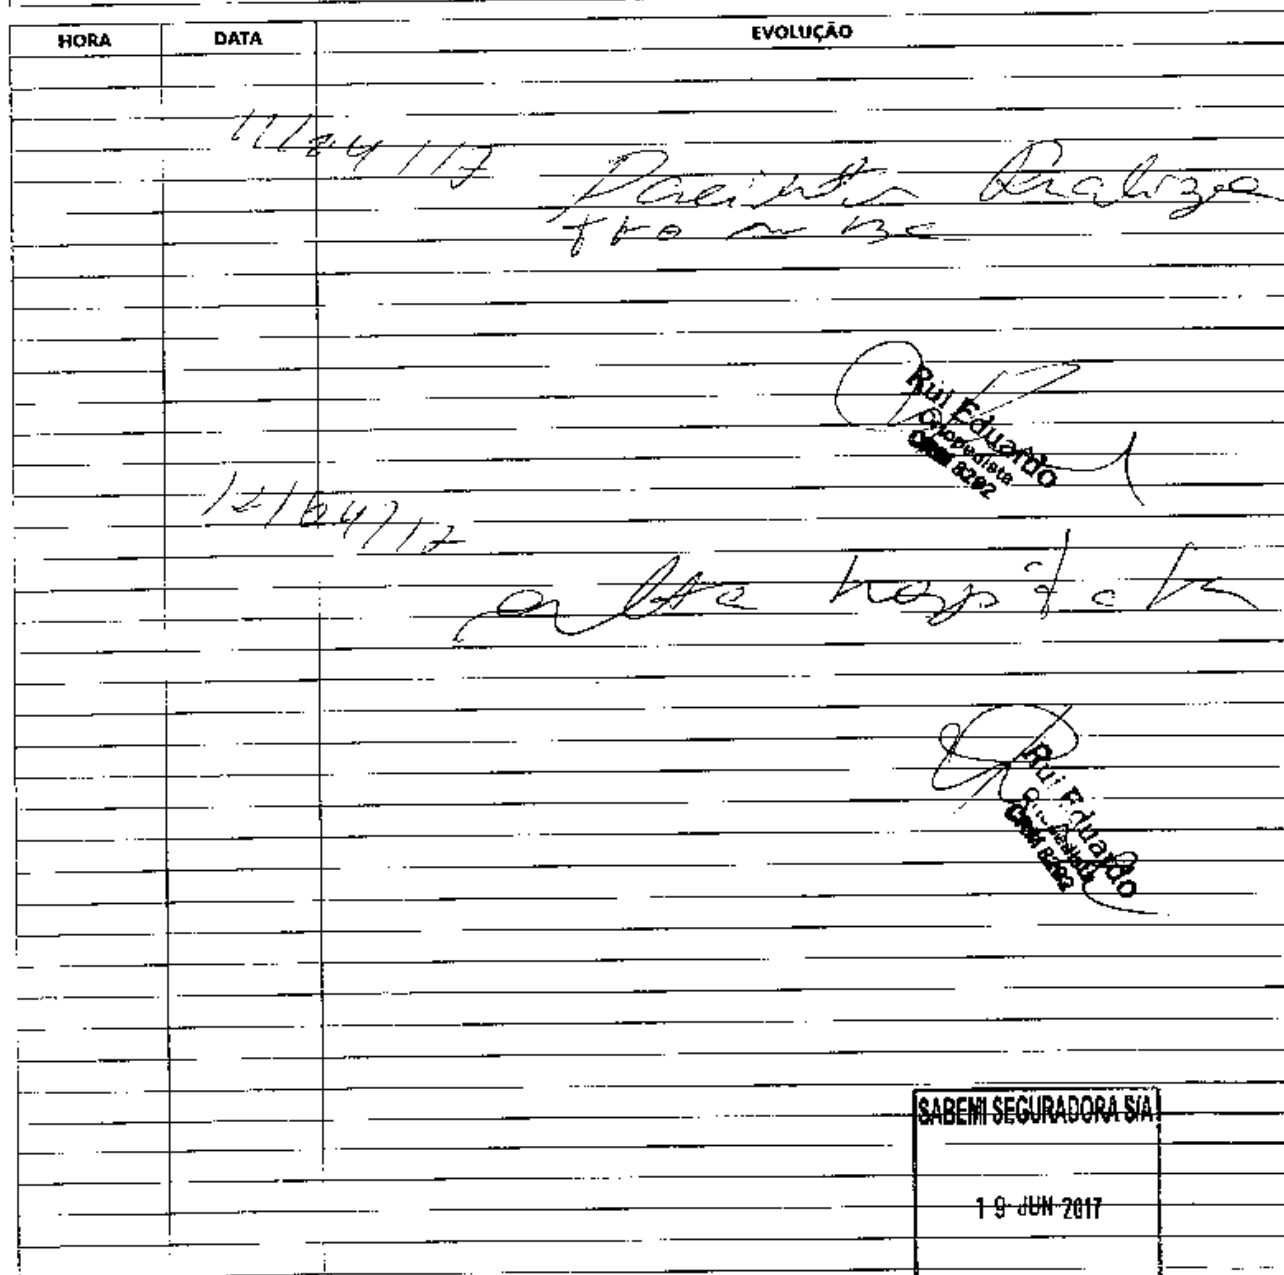 HORA DATA EVOLUÇÃO
11/04/17
Paciente Realiza
tto
Rui Eduardo
Ortopedista
CRM 8292
12/04/17
alta hospitalar
Rui Eduardo
Ortopedista
CRM 8292
SABEMI SEGURADORA S/A
19 JUN 2017